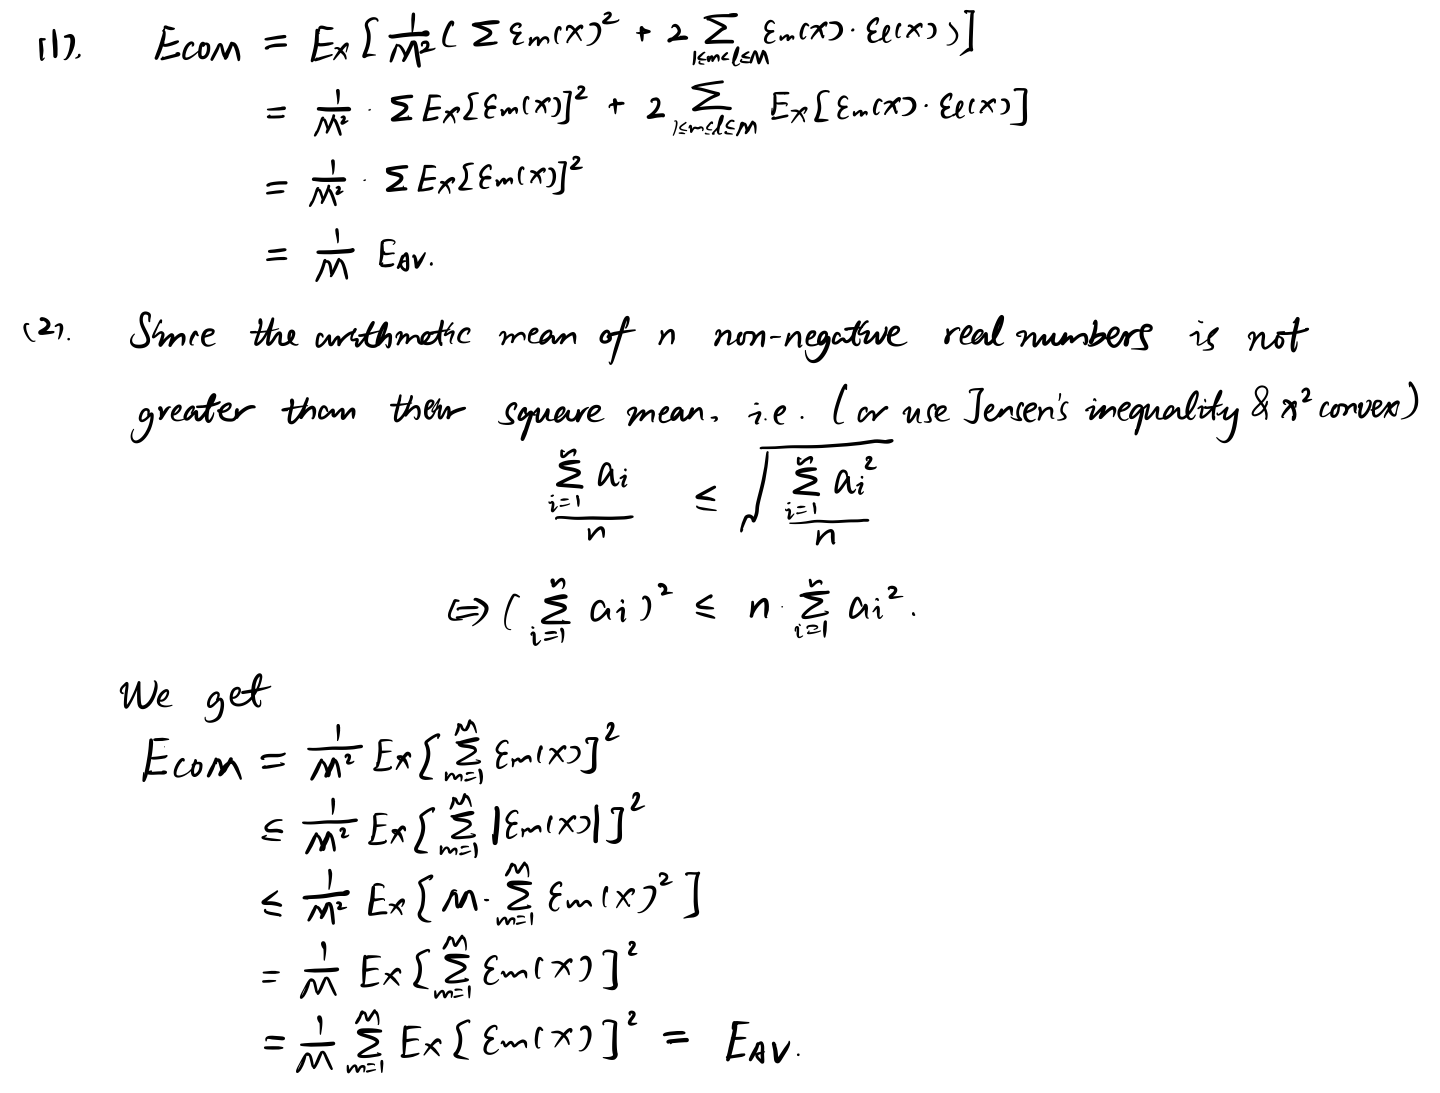 (1). E_COM = E_x [ 1/M² ( Σ ε_m(x)² + 2 Σ_{1≤m<l≤M} ε_m(x) · ε_l(x) ) ]
= 1/M² · Σ E_x[ε_m(x)]² + 2 Σ_{1≤m≤l≤M} E_x[ε_m(x) · ε_l(x)]
= 1/M² · Σ E_x[ε_m(x)]²
= 1/M E_AV.
(2). Since the arithmetic mean of n non-negative real numbers is not
greater than their square mean, i.e. (or use Jensen's inequality & x² convex)
\frac{\sum_{i=1}^{n} a_i}{n} ≤ \sqrt{\frac{\sum_{i=1}^{n} a_i^2}{n}}
⇔ ( Σ_{i=1}^{n} a_i )² ≤ n · Σ_{i=1}^{n} a_i².
We get
E_COM = 1/M² E_x [ Σ_{m=1}^{M} ε_m(x) ]²
≤ 1/M² E_x [ Σ_{m=1}^{M} |ε_m(x)| ]²
≤ 1/M² E_x [ M · Σ_{m=1}^{M} ε_m(x)² ]
= 1/M E_x [ Σ_{m=1}^{M} ε_m(x) ]²
= 1/M Σ_{m=1}^{M} E_x [ ε_m(x) ]² = E_AV.